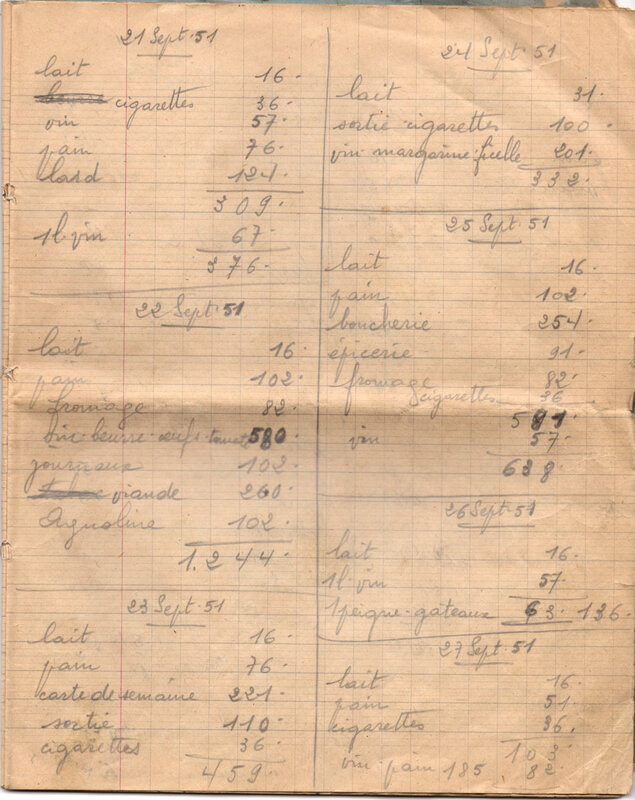 21 Sept. 51
lait 16.
cigarettes 36.
vin 57.
pain 76.
lard 124.
309.
1l. vin 67.
376.
22 Sept. 51
lait 16.
pain 102.
fromage 82.
vin. beurre. oeufs. 580
journaux 102.
viande 260
102.
1.244.
23 Sept. 51
lait 16.
pain 76.
carte de semaine 221.
sortie 110.
cigarettes 36.
459.
24 Sept. 51
lait 31.
sortie cigarettes 100
vin margarine ficelle 201.
332.
25 Sept. 51
lait 16.
pain 102.
boucherie 254.
épicerie 91.
fromage 82.
cigarettes 36
581.
vin 57.
638.
26 Sept. 51
lait 16.
1l. vin 57.
1 peigne. gateaux 63. 136.
27 Sept. 51
lait 16.
pain 51.
cigarettes 36.
103.
vin. pain 185 82.